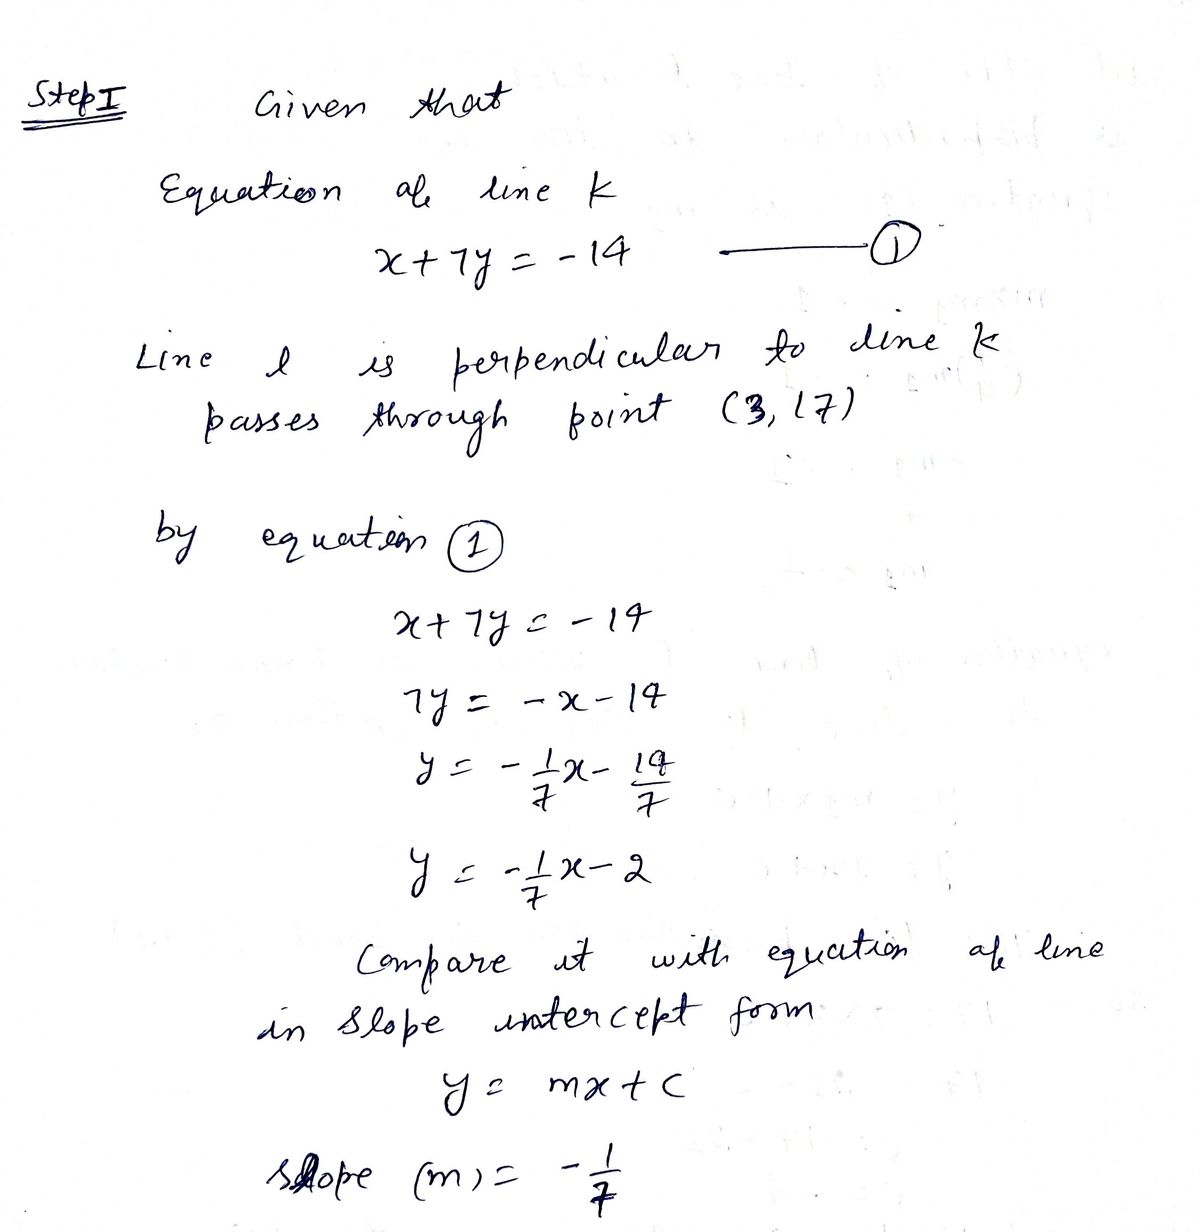 Step I Given that
Equation of line k
x + 7y = - 14 ——— ①
Line l is perpendicular to line k
passes through point (3, 17)
by equation ①
x + 7y = - 14
7y = - x - 14
y = - 1/7 x - 14/7
y = - 1/7 x - 2
Compare it with equation of line
in slope intercept form
y = mx + c
slope (m) = - 1/7